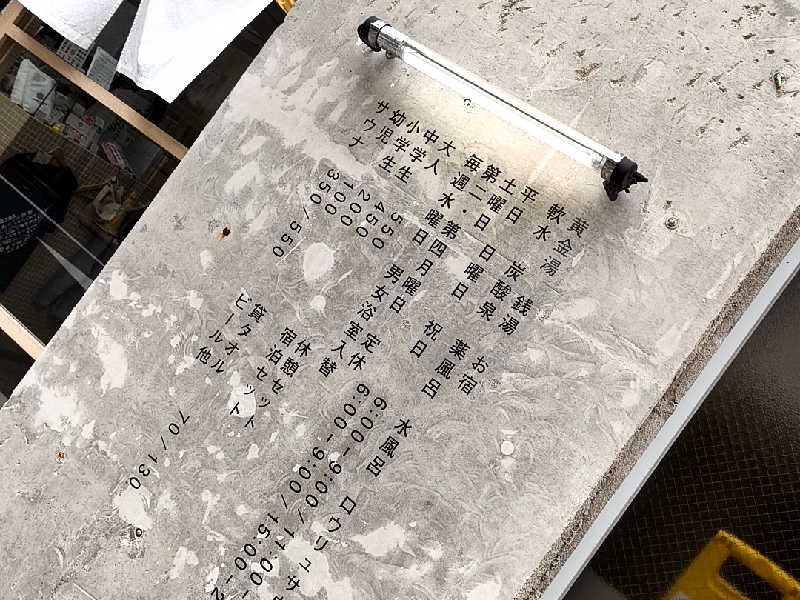 黄金湯 銭湯 お宿
軟水 炭酸泉 薬風呂 水風呂 ロウリュサウ
平日 6:00-9:00/11:00-
土曜日 日曜日 祝日 6:00-9:00/15:00-2
第二・第四月曜日 定休
毎週水曜日 男女浴室入替
大人 550
中学生 450
小学生 200
幼児 100
サウナ 350/550
休憩セット
宿泊
貸タオル ット 70/130
ビール他